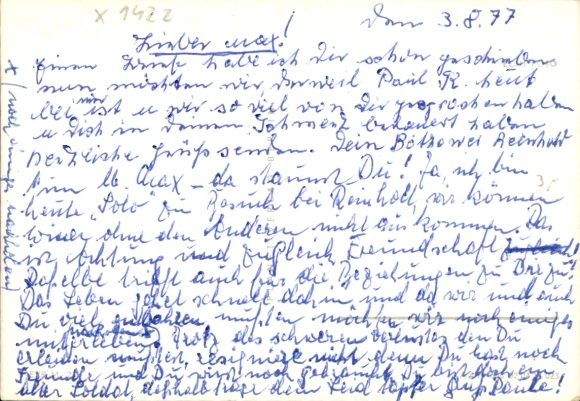 x 1422
Den 3.8.77
Lieber Max!
Einen habe ich Dir schon geschrieben
nun möchten wir, derweil Paul K. heut
bei mir ist u wir so viel von Dir gesprochen haben
u Dich in Deinem Schmerz bedauert haben
herzliche Grüße senden. Dein Reinhold
Max – da staunst Du! Ja, ich bin
heute "Solo" zu Besuch bei Reinhold, wir können
ohne den Anderen nicht auskommen. Das
ist Achtung und zugleich Freundschaft
Dasselbe trifft auch für die Beziehungen zu Dir zu!
Das Leben geht schnell dahin, und da wir und auch
Du viel mußten möchten wir noch einiges
Trotz des schweren Verlustes den Du
erleiden mußtest, resigniere nicht denn Du hast noch
Freunde und Du wirst noch gebraucht. Du bist doch ein
alter Soldat, deshalb trage dein Leid tapfer Gruß Paule!
x / noch einiges nachholen